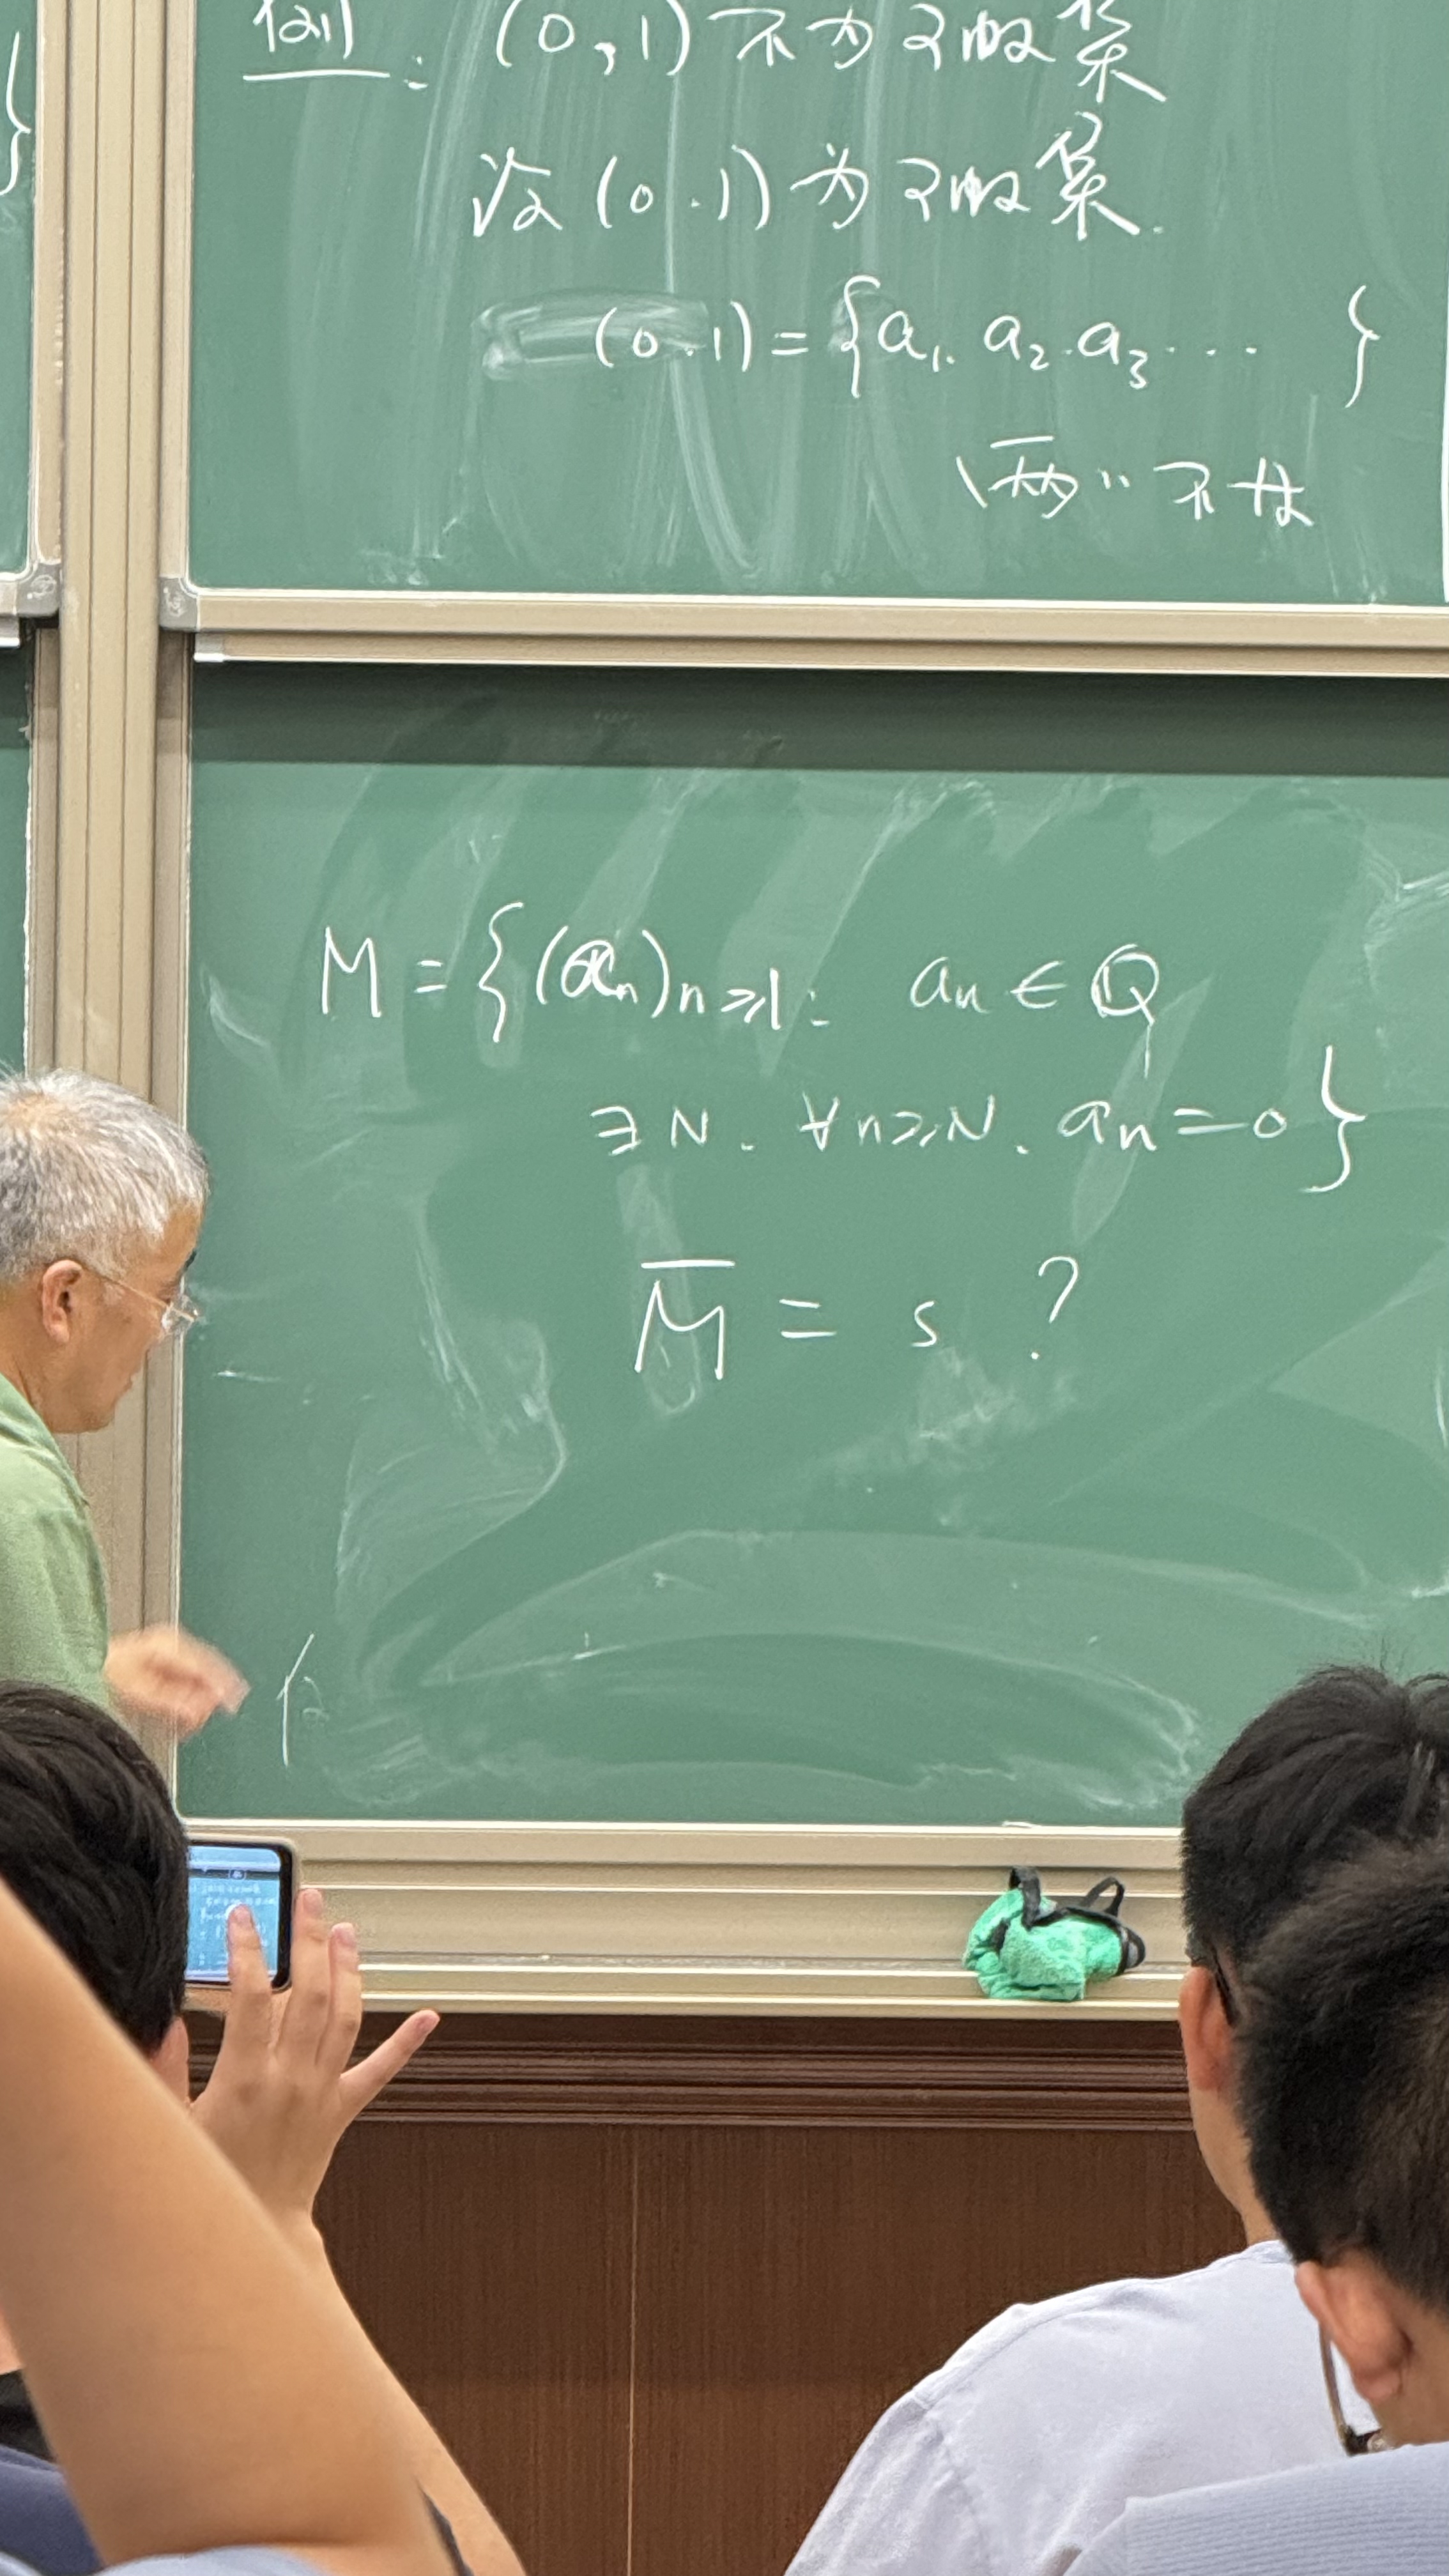 例: (0,1)不为可数集
设(0.1)为可数集.
(0.1)={a₁. a₂. a₃... }
两两不サ
M={(aₙ)ₙ≥₁: aₙ∈Q
∃N. ∀n≥N. aₙ=0}
M̅ = s ?